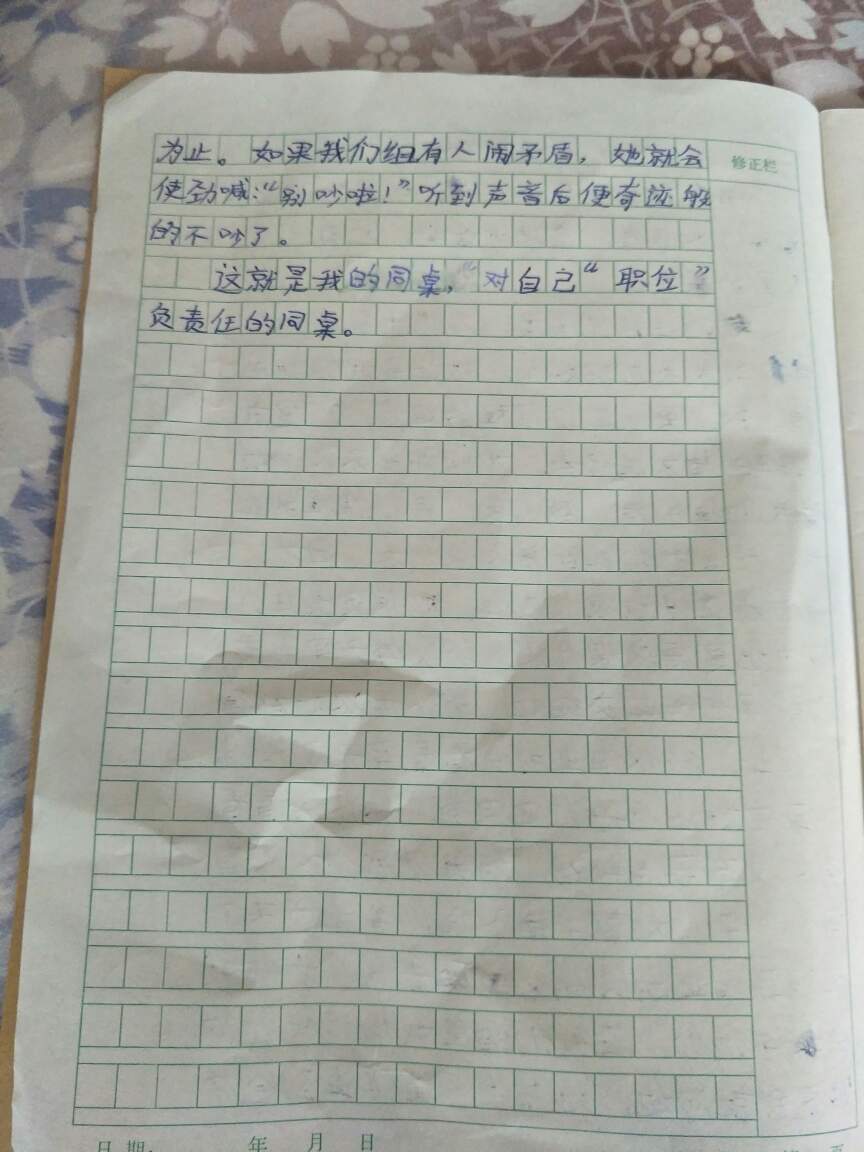 为止。如果我们组有人闹矛盾，她就会
修正栏
使劲喊：“别吵啦！”听到声音后便奇迹般
的不吵了。
这就是我的同桌，“对自己“职位”
负责任的同桌。
日期： 年 月 日